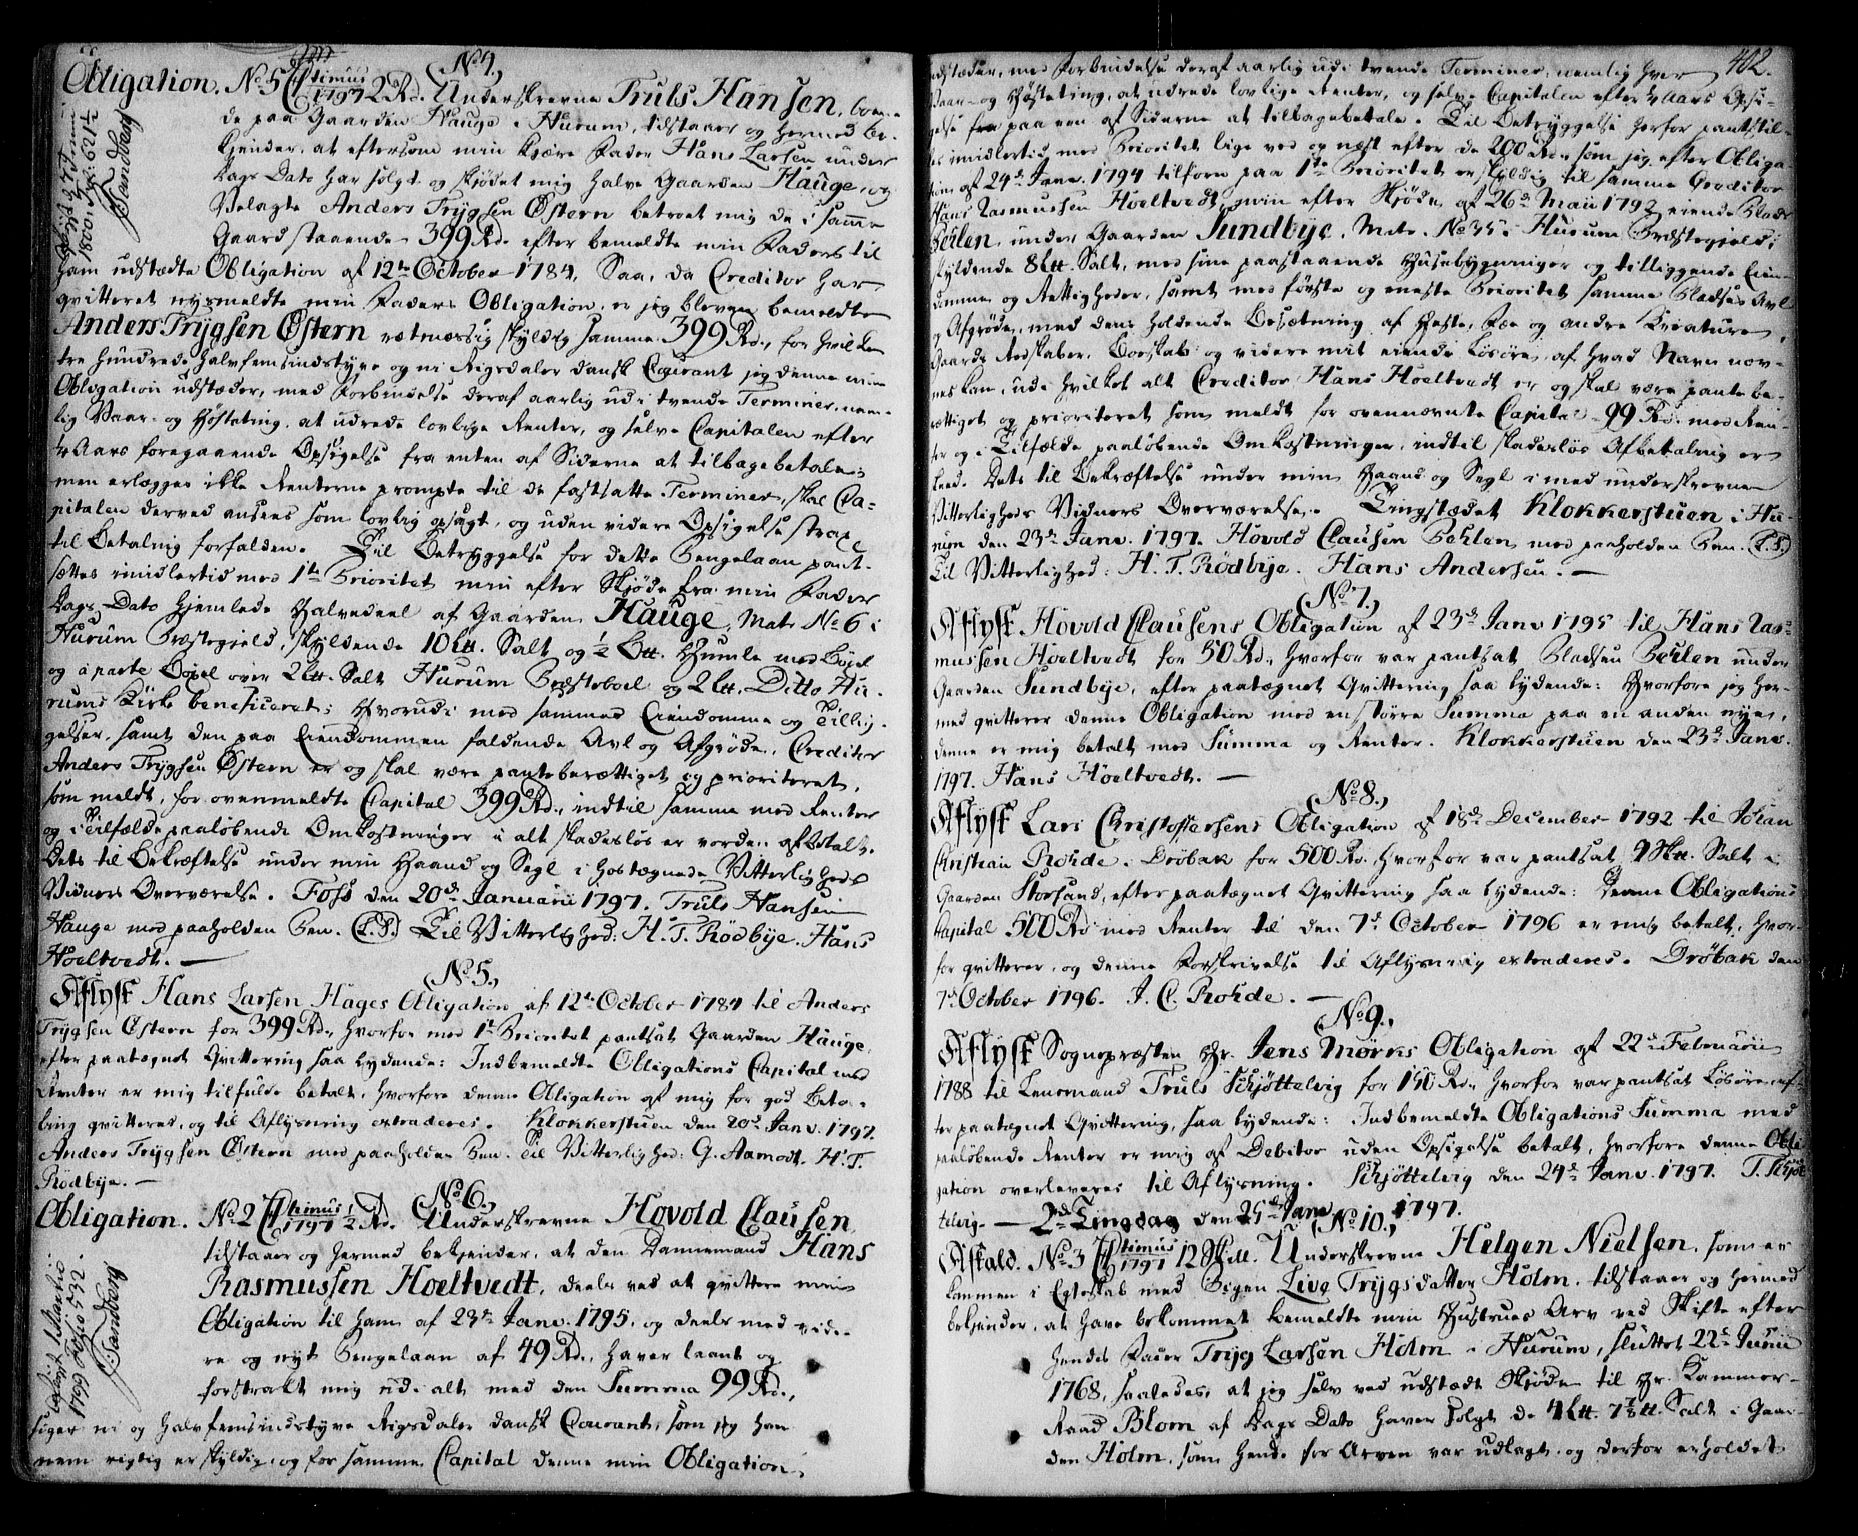 No 4.
Obligation. No 5 Ultimus 1797 2 Rd. Underskrevne Truls Hansen, boen-
de paa Gaarden Hauge i Hurum, tilstaaer og hermed be-
kjender, at eftersom min kjære Fader Hans Larsen under
Dags Dato har solgt og skjødet mig halve Gaarden Hauge, og
Velagte Anders Trygsen Østern betroet mig de i samme
Gaard staaende 399 Rd. efter bemeldte min Faders til
ham udstædte Obligation af 12te October 1784, Saa, da Creditor har
qvitteret nysmeldte min Faders Obligation, er jeg bleven bemeldte
Anders Trygsen Østern retmæssig skyldig samme 399 Rd., for hvilken
tre hundrede halvfemsindstyve og ni Rigsdaler dansk Courant jeg denne min
Obligation udstæder, med Forbindelse deraf aarlig udi tvende Terminer, nem-
lig Vaar- og Høsteting, at udrede lovlige Renter, og selve Capitalen efter
1/4 Aars foregaaende Opsigelse fra enten af Siderne at tilbagebetale;
men erlægges ikke Renterne prompte til de fastsatte Terminer, skal Ca-
pitalen derved ansees som lovlig opsagt, og uden videre Opsigelse strax
til Betaling forfalden. Til Betryggelse for dette Pengelaan pant-
sættes imidlertid med 1te Prioritet min efter Skjøde fra min Fader
Dags Dato hjemlede Halvedeel af Gaarden Hauge, Matr. No 6 i
Hurum Præstegjeld, skyldende 10 Ltt. Salt og 1/2 Btt. Humle med Bøxel
og aparte Bøxel over 2 Ltt. Salt Hurum Præsteboel og 2 Ltt. Ditto Hu-
rums Kirke beneficeret; Hvorudi med sammes Eiendomme og Tillig-
gelser, samt den paa Eiendommen faldende Avl og Afgrøde, Creditor
Anders Trygsen Østern er og skal være panteberættiget og prioriteret,
som meldt, for ovenmeldte Capital 399 Rd., indtil samme med Renter
og i Tilfælde paaløbende Omkostninger i alt skadesløs er vorden afbetalt.
Dets til Bekræftelse under min Haand og Segl i hostegnede Vitterligheds
Vidners Overværelse. Foss den 20de Januarii 1797. Truls Hansen
Hauge med paaholden Pen. (L.S.) Til Vitterlighed: H. T. Rødbye. Hans
Hoeltvedt. —
No 5.
Aflyst Hans Larsen Hages Obligation af 12te October 1784 til Anders
Trygsen Østern for 399 Rd., hvorfor med 1te Prioritet pantsat Gaarden Hauge,
efter paategnet Qvittering saa lydende: Indbemeldte Obligations Capital med
Renter er mig tilfulde betalt, hvorfore denne Obligation af mig for god Beta-
ling qvitteres, og til Aflysning extraderes. Klokkerstuen den 20de Janv. 1797.
Anders Trygsen Østern med paaholden Pen. Til Vitterlighed: G. Aamodt. H. T.
Rødbye. —
No 6.
Obligation. No 2 Ultimus 1797 1/2 Rd. Underskrevne Hovold Clausen
tilstaaer og hermed bekjender, at den Dannemand Hans
Rasmussen Hoeltvedt, deels ved at qvittere min
Obligation til ham af 23de Janv. 1795, og deels med vide-
re og nyt Pengelaan af 49 Rd., haver laant og
forstrakt mig udi alt med den Summa 99 Rd.,
siger ni og halvfemsindstyve Rigsdaler dansk Courant, som jeg ham
nem rigtig er skyldig, og for samme Capital denne min Obligation
1800 Fol: 621 1/2
Sandberg
1799 Folio 532
Sandberg
402.
udstæder, med Forbindelse deraf aarlig udi tvende Terminer, nemlig hver
Vaar- og Høsteting, at udrede lovlige Renter, og selve Capitalen efter 1/4 Aars Opsi-
gelse fra paa een af Siderne at tilbagebetale. Til Betryggelse herfor pantstil-
les imidlertid med Prioritet lige ved og næst efter de 200 Rd., som jeg efter Obliga-
tion af 24de Janv. 1794 tilforn paa 1te Prioritet er skyldig til samme Creditor
Hans Rasmussen Hoeltvedt, min efter Skjøde af 26de Maii 1792 eiende Plads
Pehlen under Gaarden Sundbye, Matr. No 35 i Hurum Præstegjeld,
skyldende 8 Ltt. Salt, med sine paastaaende Huusebygninger og tilliggende Eien-
domme og Rettigheder, samt med første og eneste Prioritet samme Pladses Avl
og Afgrøde, med dens holdende Besætning af Heste, Fæe og andre Kreature,
Gaards Redskaber, Boeskab og videre mit eiende Løsøre, af hvad Navn nev-
nes kan, udi hvilket alt Creditor Hans Hoeltvedt er og skal være pantebe-
rettiget og prioriteret som meldt for ovennævnte Capital 99 Rd. med Ren-
ter og i Tilfælde paaløbende Omkostninger, indtil skadesløs Afbetaling er
skeed. Dets til Bekræftelse under min Haand og Segl i med underskrevne
Vitterligheds Vidners Overværelse. Tingstædet Klokkerstuen i Hu-
rum den 23de Janv. 1797. Hovold Clausen Pehlen med paaholden Pen. (L.S.)
Til Vitterlighed: H. T. Rødbye. Hans Andersen. —
No 7.
Aflyst Hovold Clausens Obligation af 23de Janv 1795 til Hans Ras-
mussen Hoeltvedt for 50 Rd., hvorfor var pantsat Pladsen Pehlen under
Gaarden Sundbye, efter paategnet Qvittering saa lydende: Hvorfore jeg her-
med qvitterer denne Obligation med en større Summa paa en anden nye,
denne er mig betalt med Summa og Renter. Klokkerstuen den 23de Janv.
1797. Hans Hoeltvedt. —
No 8.
Aflyst Lars Christoffersens Obligation af 18de December 1792 til Johan
Christian Rohde i Drøbak for 500 Rd., hvorfor var pantsat 9 Sktt. Salt i
Gaarden Storsand, efter paategnet Qvittering saa lydende: Denne Obligations
Capital 500 Rd med Renter til den 7de October 1796 er mig betalt, hvor-
for qvitterer, og denne Forskrivelse til Aflysning extraderes. Drøbak den
7de October 1796. J. C. Rohde. —
No 9.
Aflyst Sognepræsten Hr. Jens Mørks Obligation af 22de Februarii
1788 til Lensmand Truls Schjøttelvig for 150 Rd., hvorfor var pantsat Løsøre, ef-
ter paategnet Qvittering, saa lydende: Indbemeldte Obligations Summa med
paaløbende Renter er mig af Debitor uden Opsigelse betalt, hvorfore denne Obli-
gation overleveres til Aflysning. Schjøttelvig den 24de Janv. 1797. T. Schjøt
telvig. — 2de Tingdag den 25de Janv 1797.
No 10.
Afkald. No 3 Ultimus 1797 12 Skill. Underskrevne Helgen Nielsen, som er
kommen i Egteskab med Pigen Live Trygsdatter Holm, tilstaaer og hermed
bekjender, at have bekommet bemeldte min Hustrues Arv ved Skifte efter
hendes Fader Tryg Larsen Holm i Hurum, sluttet 22de Junii
1768, saaledes, at jeg selv ved udstædt Skjøde til Hr. Kammer-
Raad Blom af Dags Dato haver solgt de 4 Ltt. 7 1/2 tt. Salt i Gaar-
den Holm, som hende for Arven var udlagt, og derfor erholdet